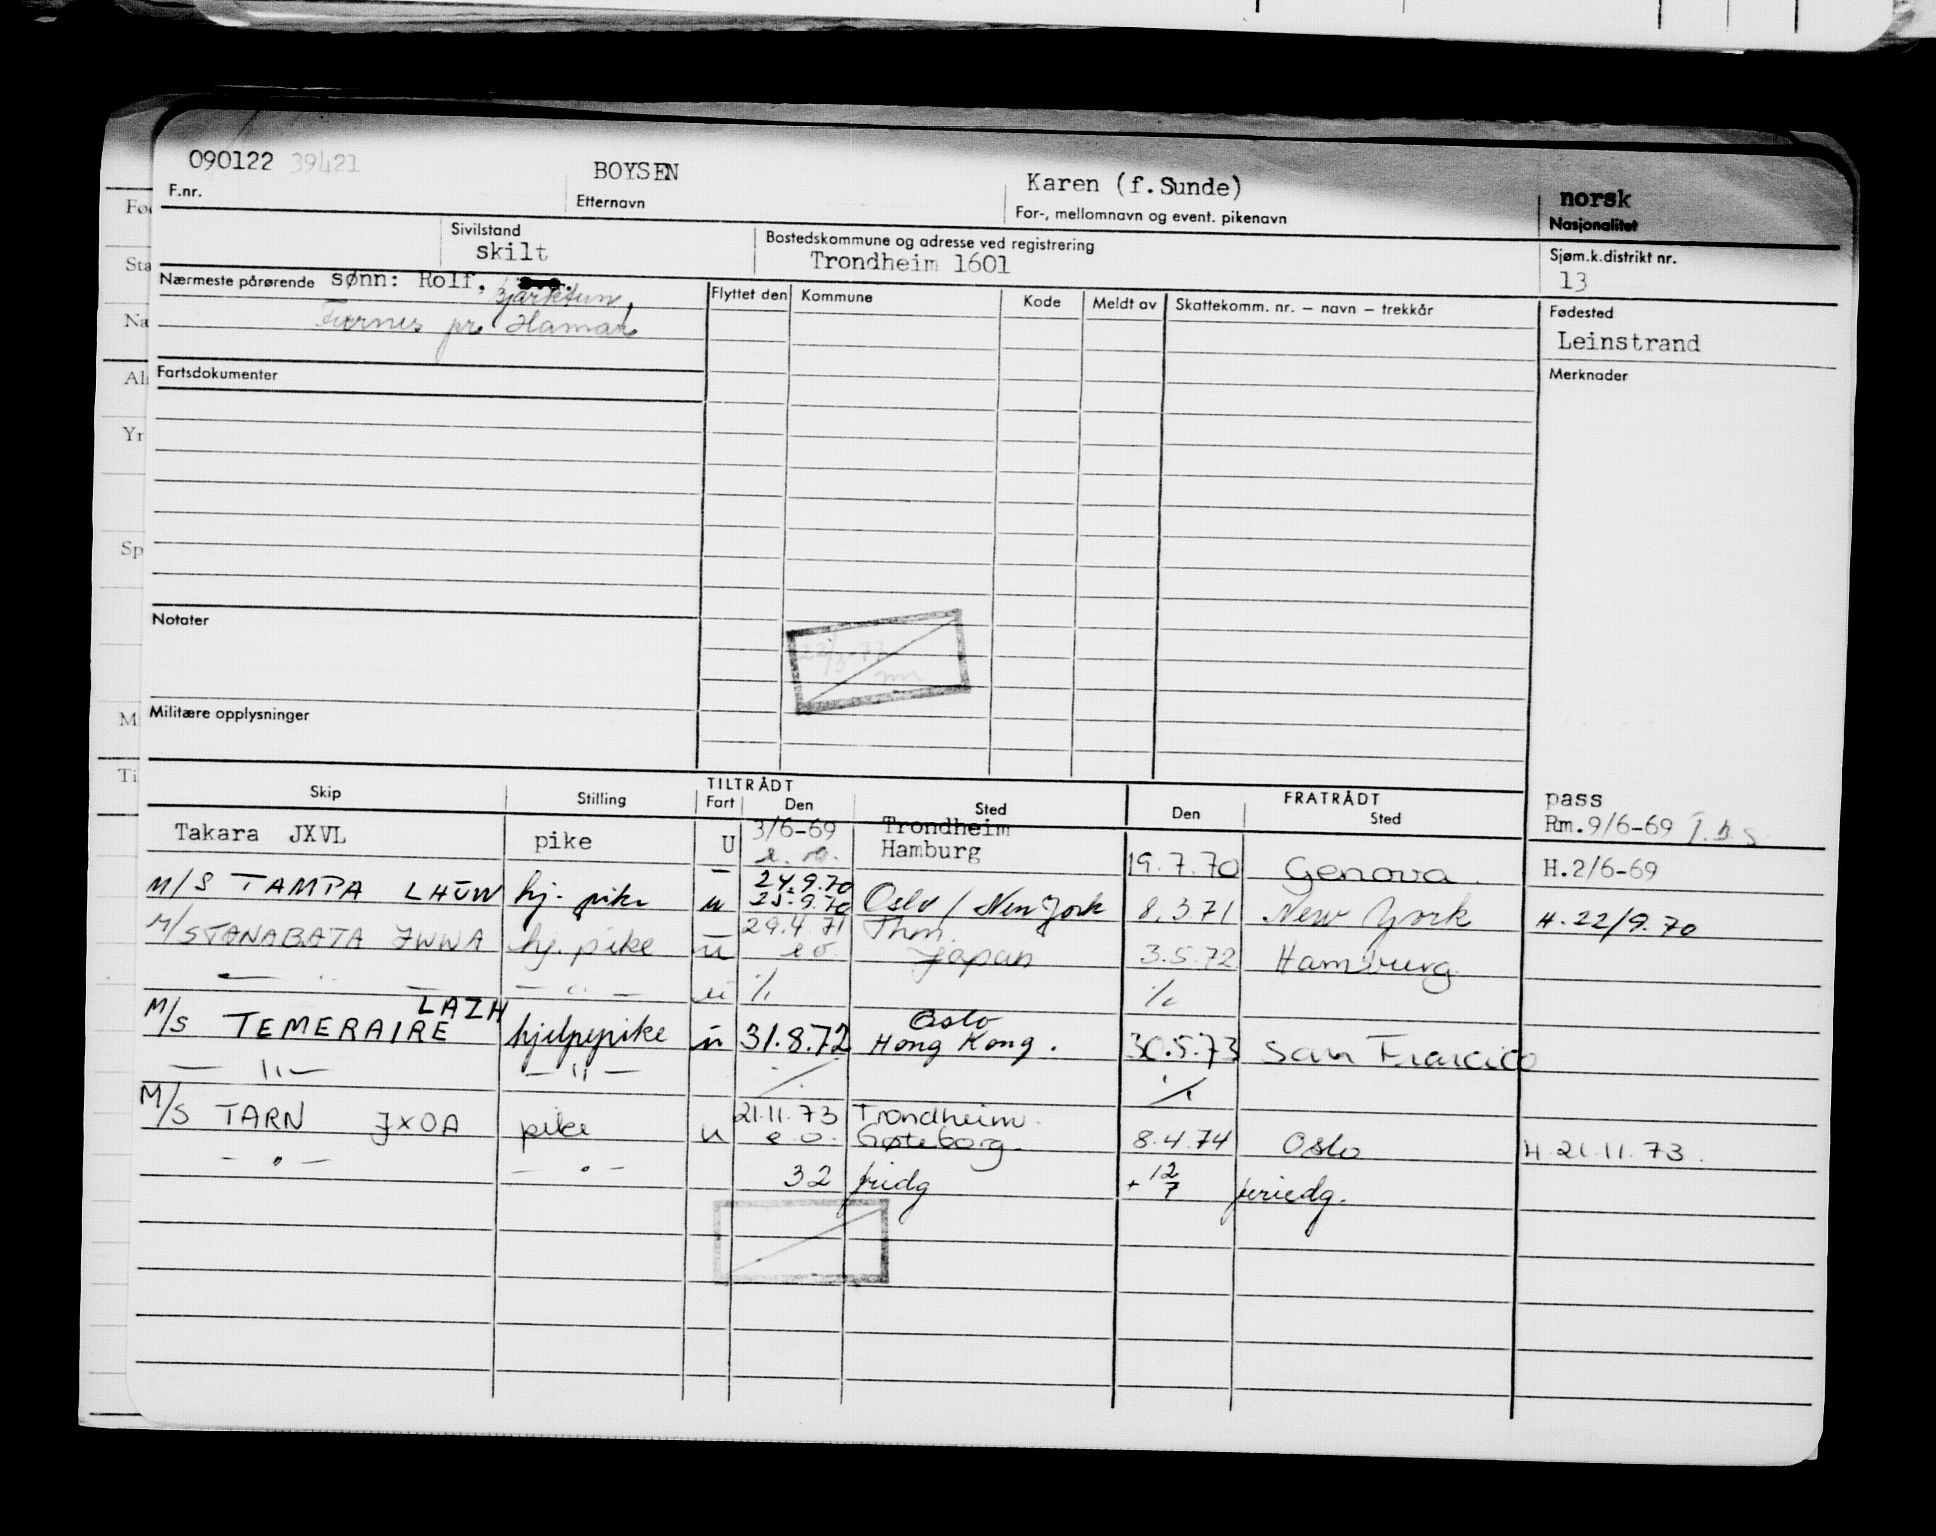 090122 39421 BOYSEN Karen (f. Sunde) norsk
F.nr. Etternavn For-, mellomnavn og event. pikenavn Nasjonalitet
Sivilstand Bostedskommune og adresse ved registrering Sjøm.k.distrikt nr.
skilt Trondheim 1601 13
Nærmeste pårørende sønn: Rolf, Flyttet den Kommune Kode Meldt av Skattekomm. nr. – navn – trekkår Fødested
Bjarktun,
pr Hamar
Leinstrand
Fartsdokumenter Merknader
Notater
Militære opplysninger
TILTRÅDT FRATRÅDT
Skip Stilling Fart Den Sted Den Sted
pass
Rm.9/6-69
Takara JXVL pike U 3/6-69 Trondheim
Hamburg 19.7.70 Genova H.2/6-69
M/S TAMPA LHUW hj. pike u 24.9.70
25.9.70 Oslo / New York 8.3.71 New York H.22/9.70
M/S TANABATA JWWA hj. pike u 29.4 71 Thm.
e o. Japan 3.5.72 Hamburg
— " — — " — u ⁒ ⁒
M/S TEMERAIRE LAZH hjelpepike u 31.8.72 Oslo
Hong Kong. 30.5.73 San Francico
— " — — " — ⁒ ⁒
M/S TARN JXOA pike u 21.11.73 Trondheim.
e.o. Gøteborg. 8.4.74 Oslo H 21.11.73.
— " — — " — 32 fridg + 12/7 feriedg.
Fød
Sta
Na
Yr
Sp
M
Ti